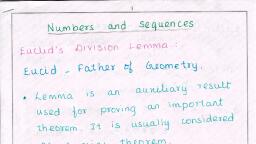 Numbers and Sequences
Euclid's Division Lemma :
Euclid - Father of Geometry.
• Lemma is an auxiliary result
used for proving an important
theorem. It is usually considered
theorem.